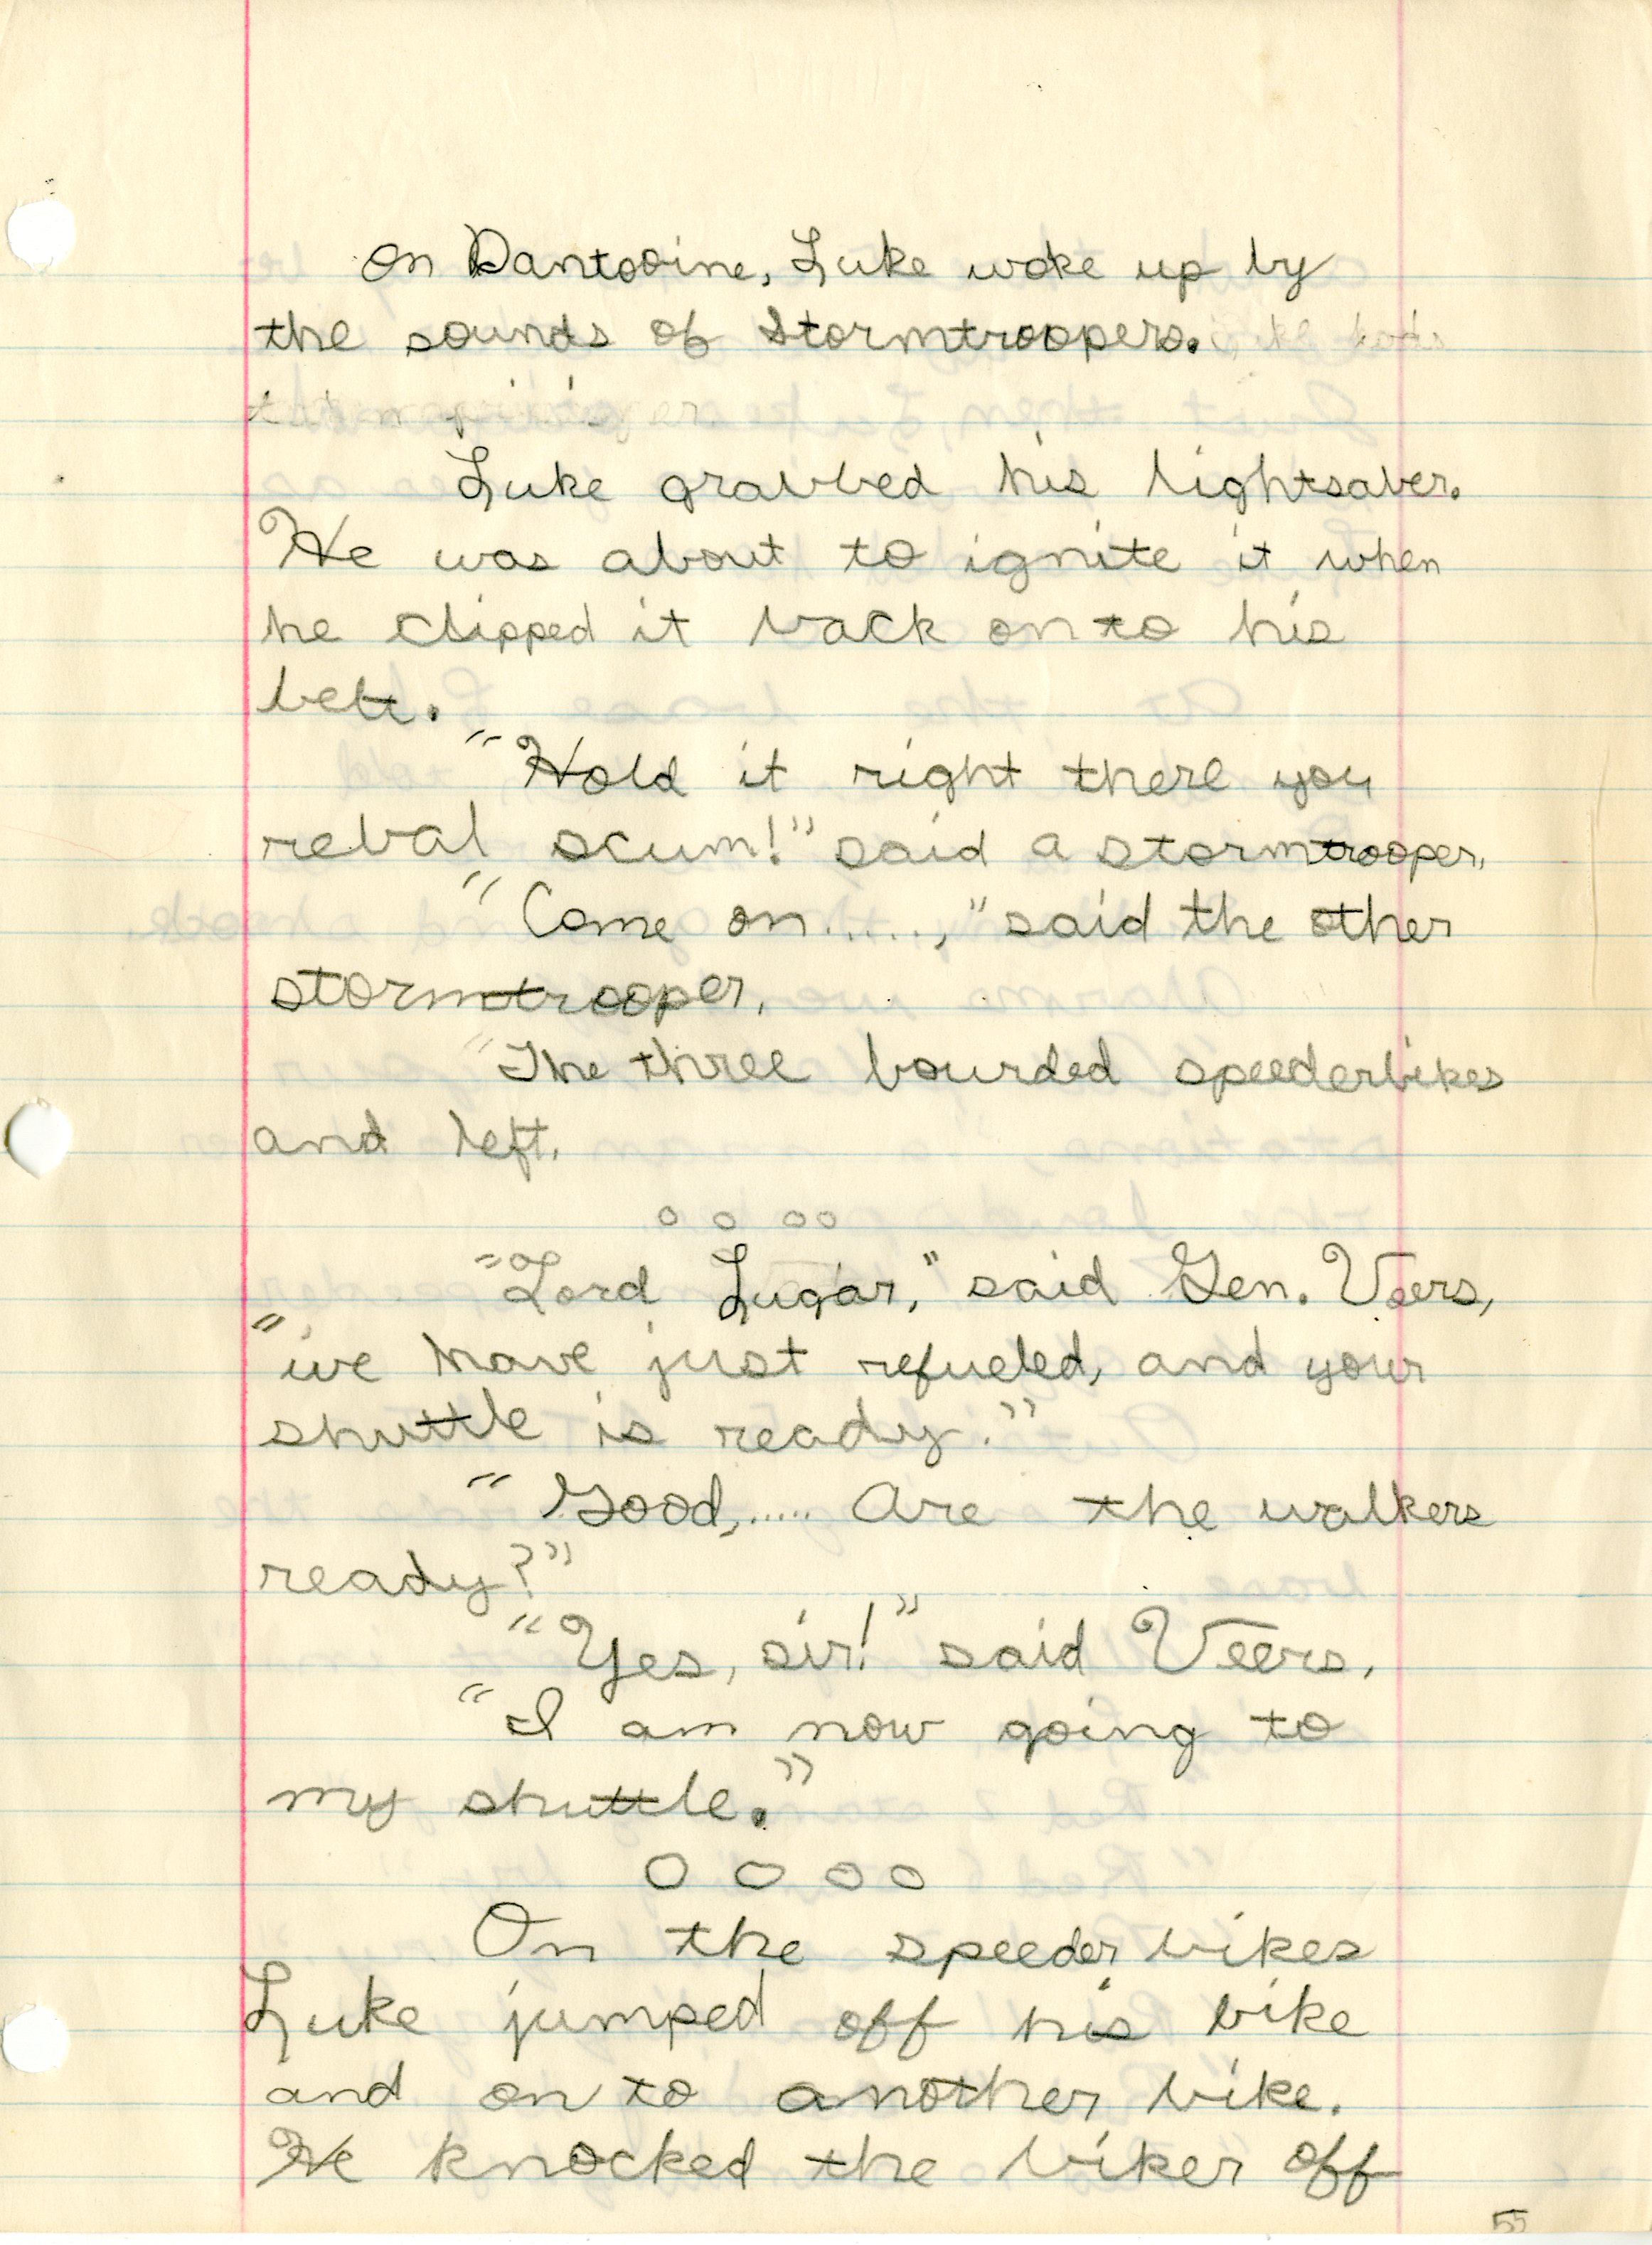 On Dantooine, Luke woke up by
the sounds of Stormtroopers.
Luke grabbed his lightsaber.
He was about to ignite it when
he clipped it back on to his
belt.
"Hold it right there you
rebal scum!" said a stormtrooper.
"Come on......," said the other
stormtrooper.
"The three bourded speederbikes
and left.
o o o o
"Lord Lugar," said Gen. Veers,
"we have just refueled, and your
shuttle is ready."
"Good,..... Are the walkers
ready?"
"Yes, sir!" said Veers.
"I am now going to
my shuttle."
O O O O
On the speeder bikes
Luke jumped off his bike
and on to another bike.
He knocked the biker off
55